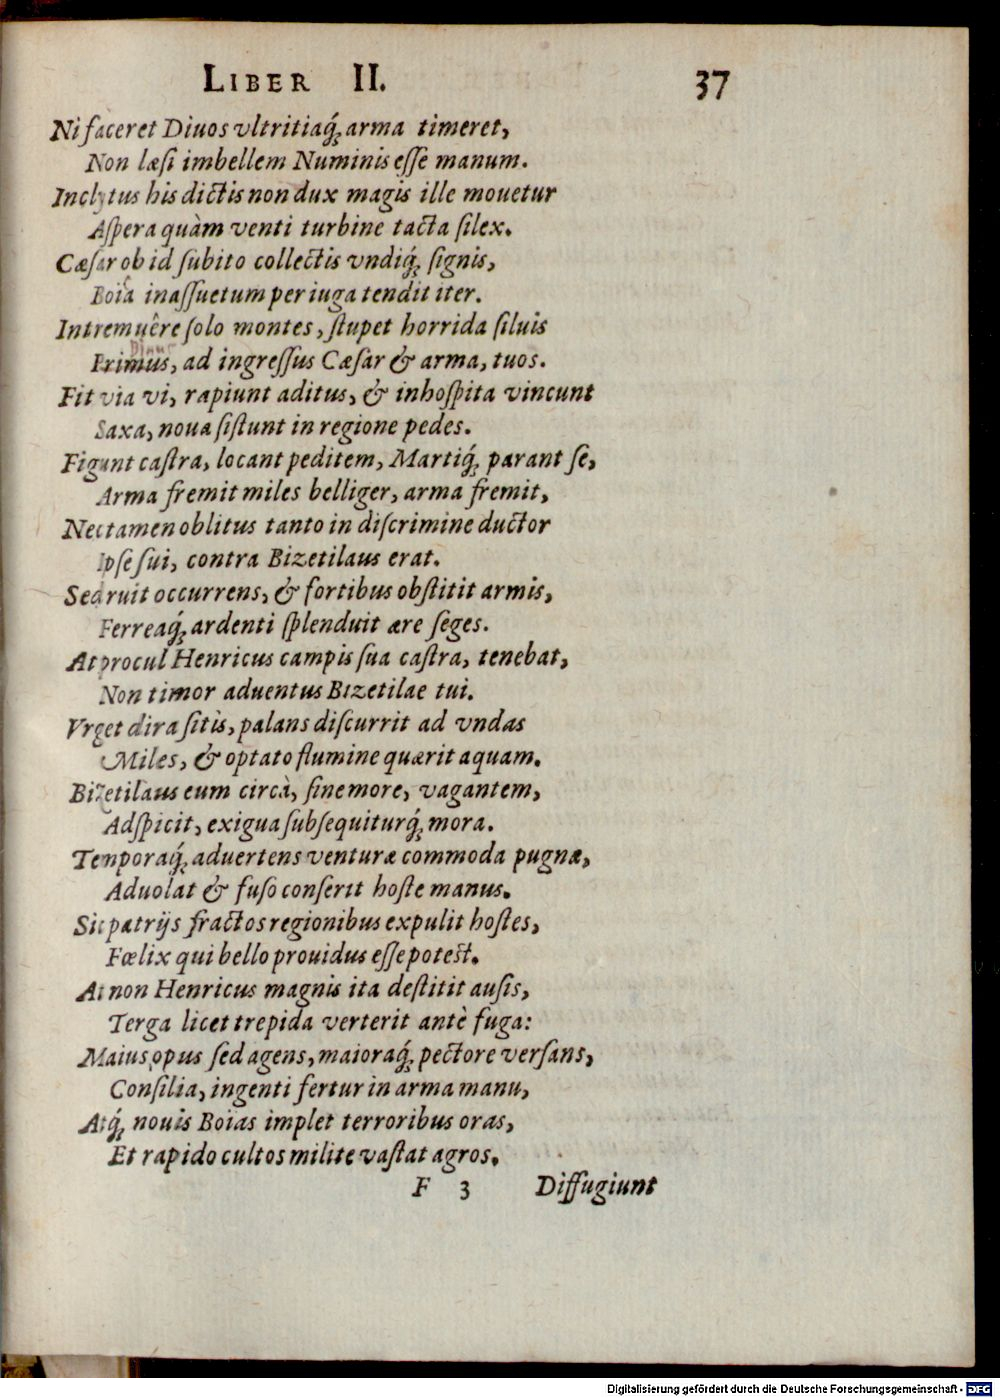 LIBER II. 37
Ni faceret Diuos vltritiaq́; arma timeret,
Non læsi imbellem Numinis esse manum.
Inclytus his dictis non dux magis ille mouetur
Aspera quàm venti turbine tacta silex.
Cæsar ob id subito collectis vndiq́; signis,
Boia inassuetum per iuga tendit iter.
Intremuêre solo montes, stupet horrida siluis
Primus, ad ingressus Cæsar & arma, tuos.
Fit via vi, rapiunt aditus, & inhospita vincunt
Saxa, noua sistunt in regione pedes.
Figunt castra, locant peditem, Martiq́; parant se,
Arma fremit miles belliger, arma fremit,
Nec tamen oblitus tanto in discrimine ductor
Ipse sui, contra Bizetilaus erat.
Sed ruit occurrens, & fortibus obstitit armis,
Ferreaq́; ardenti splenduit ære seges.
At procul Henricus campis sua castra, tenebat,
Non timor aduentus Bizetilae tui.
Vrget dira sitis, palans discurrit ad vndas
Miles, & optato flumine quærit aquam.
Bizetilaus eum circà, sine more, vagantem,
Adspicit, exigua subsequiturq́; mora.
Temporaq́; aduertens venturæ commoda pugnæ,
Aduolat & fuso conserit hoste manus.
Sic patrijs fractos regionibus expulit hostes,
Fœlix qui bello prouidus esse potest.
At non Henricus magnis ita destitit ausis,
Terga licet trepida verterit antè fuga:
Maius opus sed agens, maioraq́; pectore versans,
Consilia, ingenti fertur in arma manu,
Atq́; nouis Boias implet terroribus oras,
Et rapido cultos milite vastat agros.
F 3 Diffugiunt
Digitalisierung gefördert durch die Deutsche Forschungsgemeinschaft - DFG